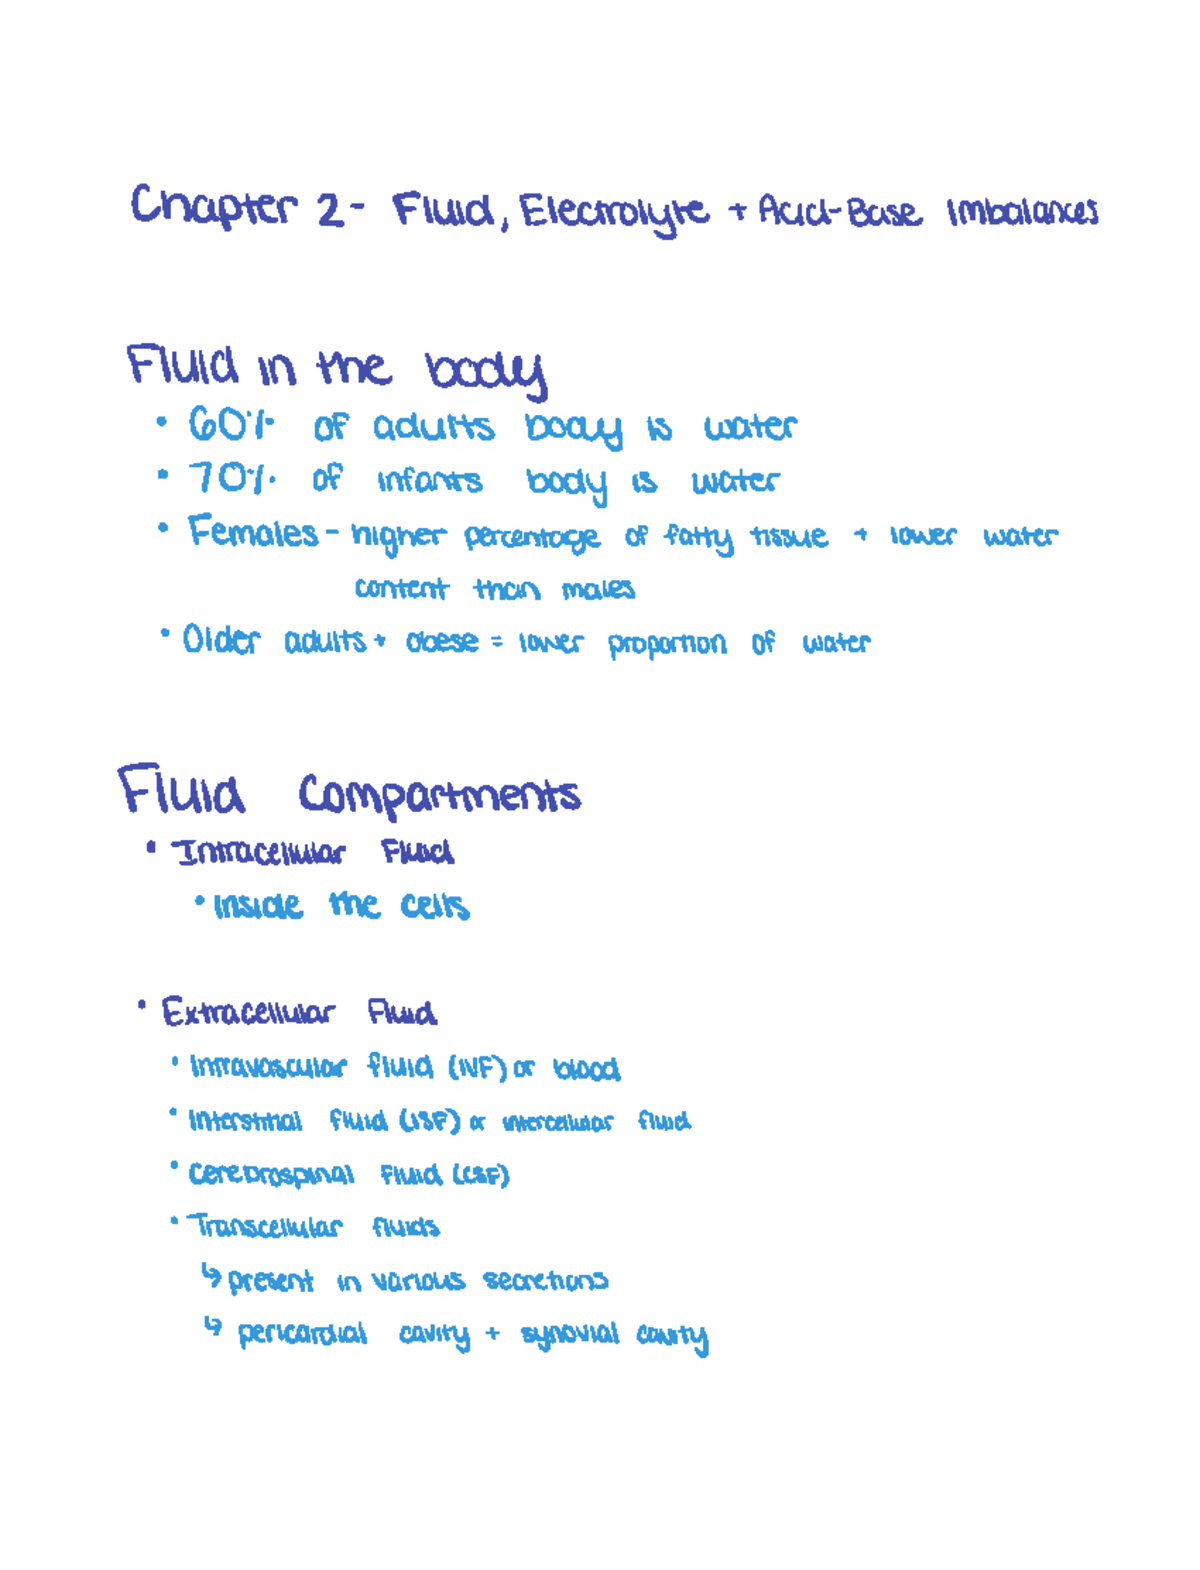 Chapter 2- Fluid, Electrolyte + Acid-Base Imbalances
Fluid in the body
• 60% of adults body is water
• 70% of infants body is water
• Females - higher percentage of fatty tissue + lower water
content than males
• Older adults + obese = lower proportion of water
Fluid Compartments
• Intracellular Fluid
• inside the cells
• Extracellular Fluid
• Intravascular fluid (IVF) or blood
• Interstitial fluid (ISF) or intercellular fluid
• Cerebrospinal fluid (CSF)
• Transcellular fluids
↳ present in various secretions
↳ pericardial cavity + synovial cavity